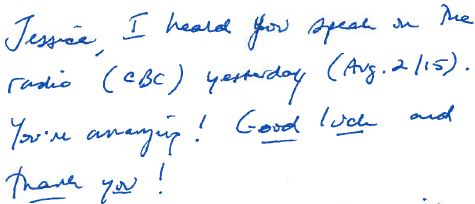 Jessica, I heard you speak on the
radio (CBC) yesterday (Aug. 2/15).
You're amazing! Good luck and
thank you!